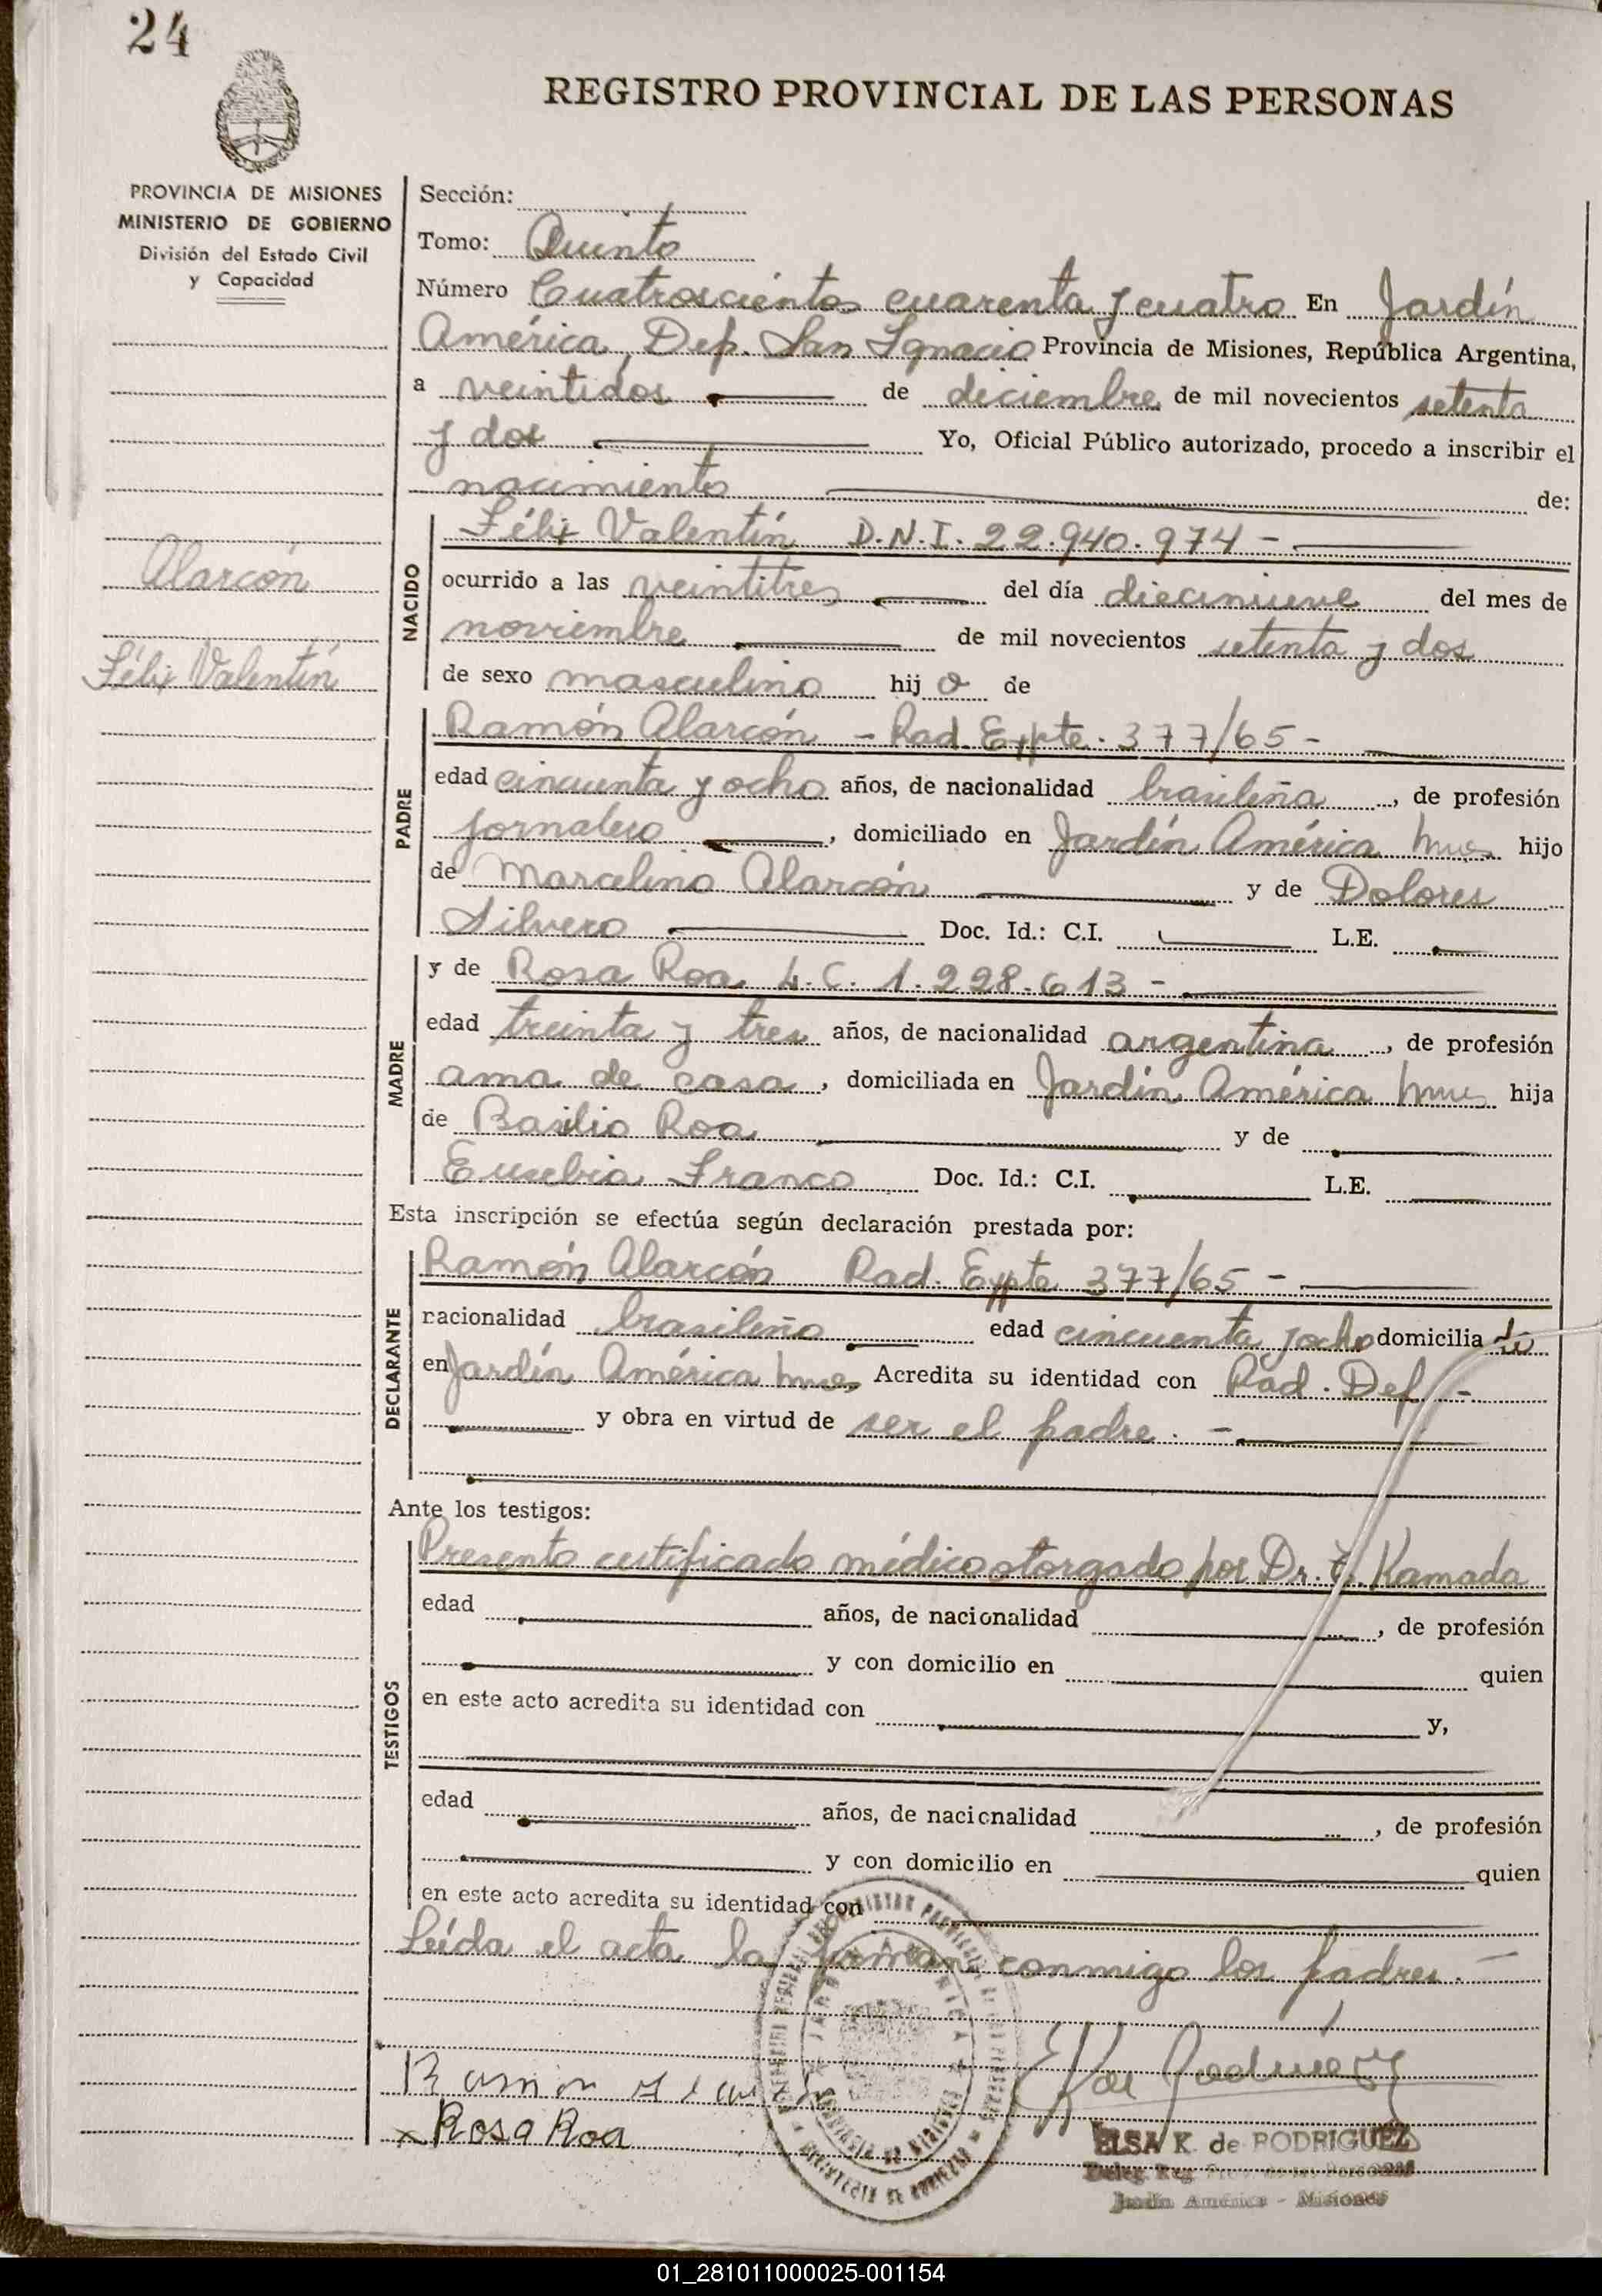 24
REGISTRO PROVINCIAL DE LAS PERSONAS
PROVINCIA DE MISIONES
MINISTERIO DE GOBIERNO
División del Estado Civil
y Capacidad
Alarcón
Félix Valentín
Sección:
Tomo: Quinto
Número Cuatroscientos cuarenta y cuatro En Jardín
América, Dep. San Ignacio Provincia de Misiones, República Argentina,
a veintidos de diciembre de mil novecientos setenta
y dos Yo, Oficial Público autorizado, procedo a inscribir el
nacimiento de:
NACIDO
Félix Valentín D.N.I. 22.940.974 -
ocurrido a las veintitres del día diecinueve del mes de
noviembre de mil novecientos setenta y dos
de sexo masculino hij o de
PADRE
Ramón Alarcón - Rad. Expte. 377/65 -
edad cincuenta y ocho años, de nacionalidad brasileña, de profesión
jornalero, domiciliado en Jardín América Mnes hijo
de Marcelino Alarcón y de Dolores
Silvero Doc. Id.: C.I. L.E.
MADRE
y de Rosa Roa L.C. 1.228.613 -
edad treinta y tres años, de nacionalidad argentina, de profesión
ama de casa, domiciliada en Jardín América Mnes hija
de Basilio Roa y de
Eusebia Franco Doc. Id.: C.I. L.E.
Esta inscripción se efectúa según declaración prestada por:
DECLARANTE
Ramón Alarcón Rad. Expte 377/65 -
nacionalidad brasileño edad cincuenta y ocho domicilia do
en Jardín América Mnes Acredita su identidad con Rad. Def -
y obra en virtud de ser el padre. -
Ante los testigos:
TESTIGOS
Presento certificado médico otorgado por Dr. Kamada
edad años, de nacionalidad, de profesión
y con domicilio en quien
en este acto acredita su identidad con y,
edad años, de nacionalidad, de profesión
y con domicilio en quien
en este acto acredita su identidad con
Leída el acta la firman conmigo los padres. -
Ramon
x Rosa Roa
ELSA K. de RODRIGUEZ
Deleg. Reg. Prov. de las Personas
Jardín América - Misiones
01_281011000025-001154